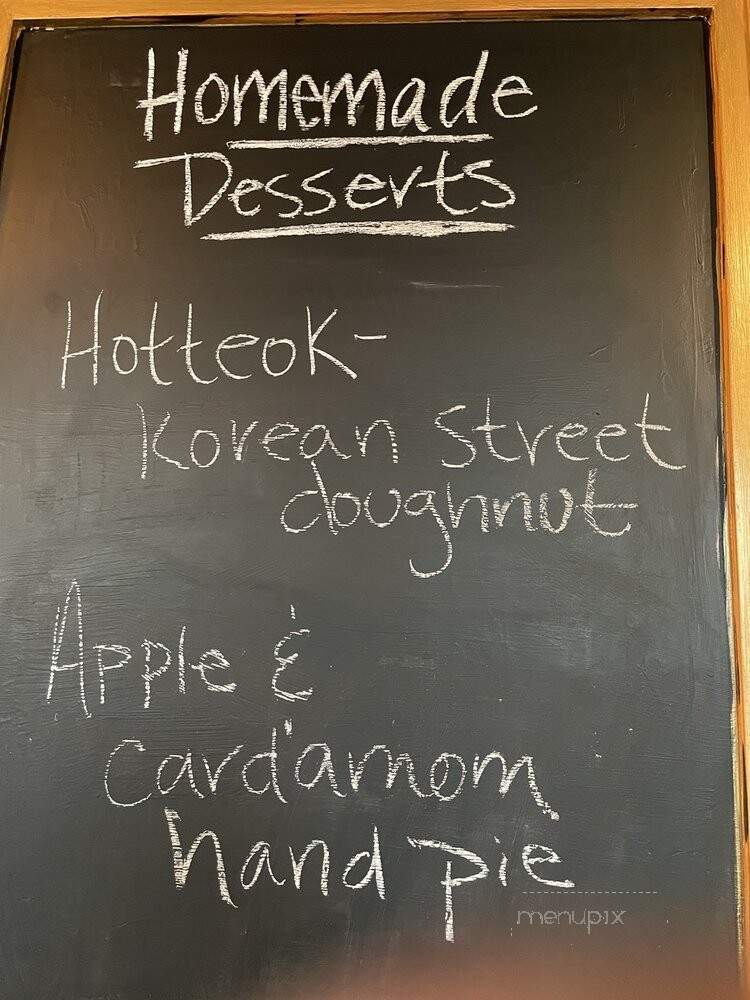 Homemade
Desserts
Hotteok-
Korean Street
doughnut
Apple &
Card'amom
hand pie
menupix